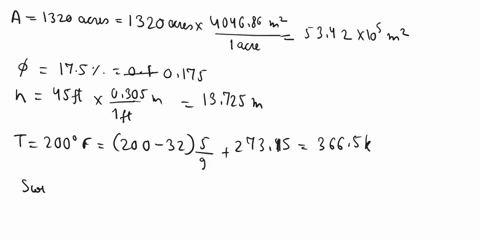 A = 1320 acres = 1320 acres × 4046.86 m² / 1 acre = 53.42 × 10⁵ m²
φ = 17.5 % = 0.1 0.175
h = 45 ft × 0.305 m / 1 ft = 13.725 m
T = 200° F = (200 - 32) 5/9 + 273.15 = 366.5 k
Swr